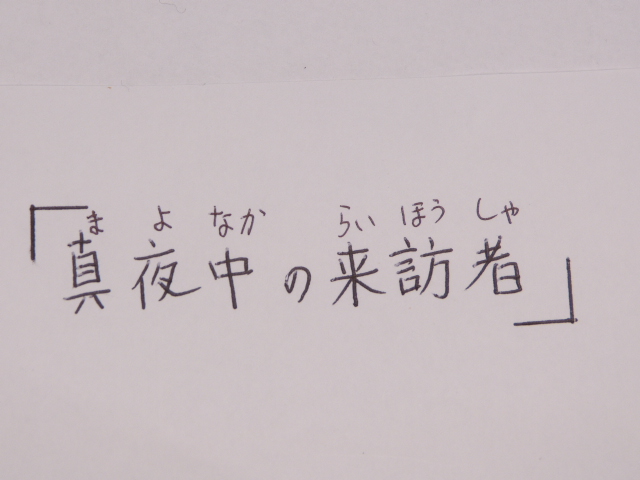 ま よ なか らい ほう しゃ
「真夜中の来訪者」